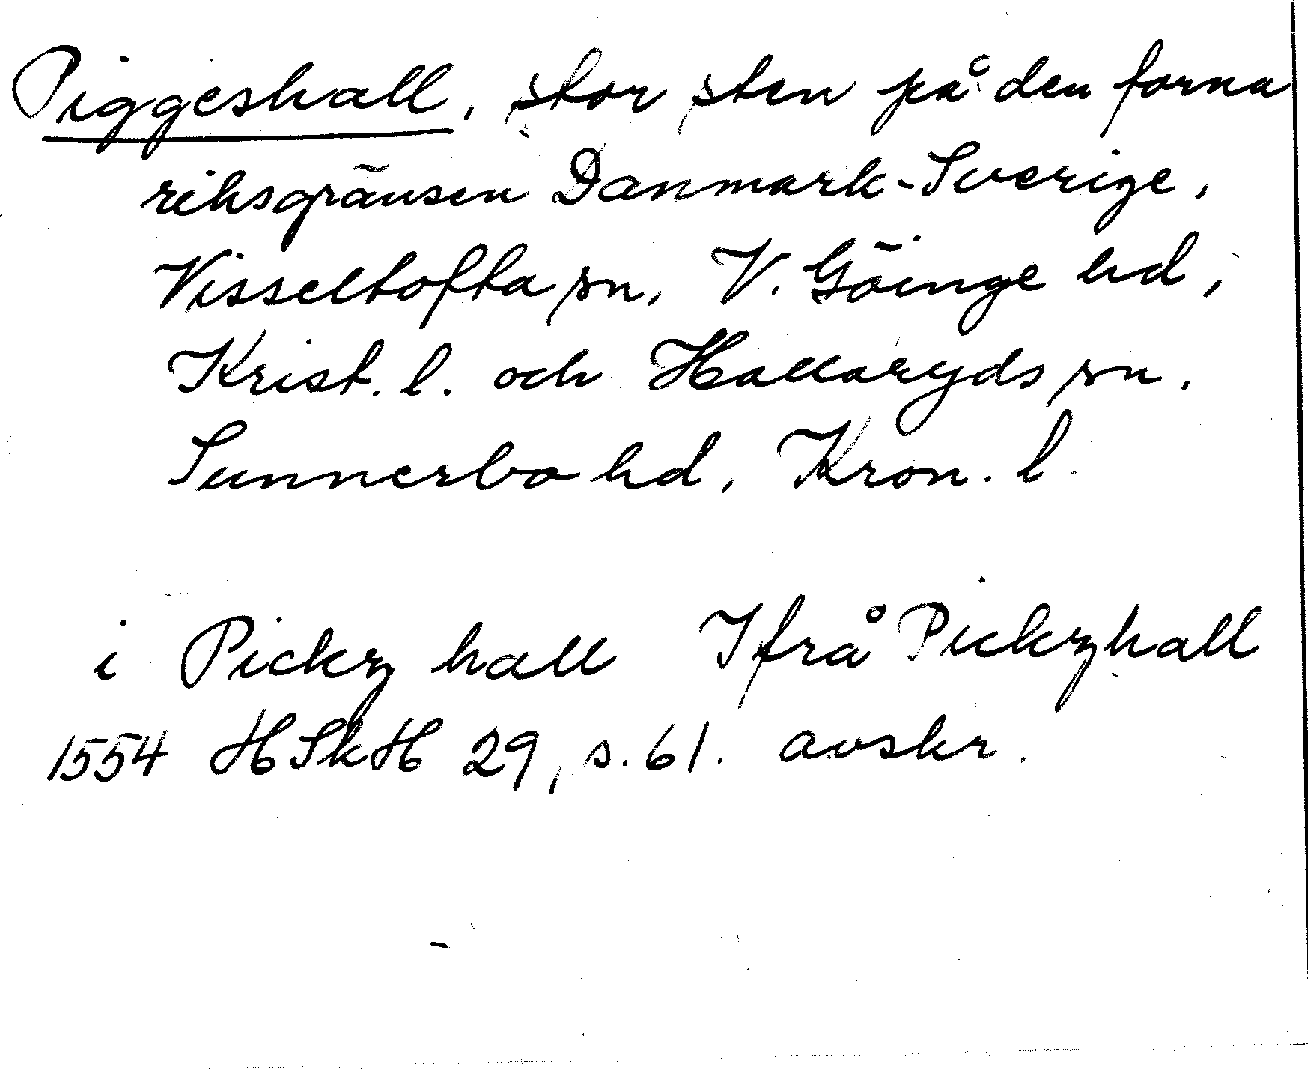 Piggeshall, stor sten på den forna
riksgränsen Danmark-Sverige,
Visseltofta sn, V. Göinge hd,
Krist. l. och Hallaryds sn,
Sunnerbo hd, Kron. l.
i Pickz hall Ifrå Pickzhall
1554 HSkH 29, s. 61. avskr.